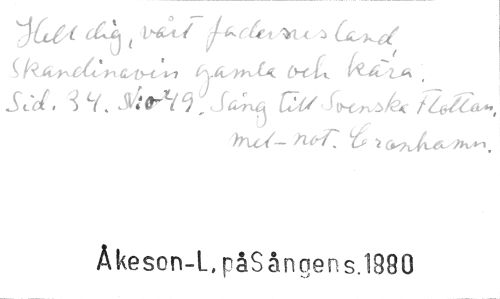 Hell dig, vårt fädernesland,
Skandinavien gamla och kära.
Sid. 34. N:o 49. Sång till Svenska Flottan,
mel-not. Cronhamn.
Åkeson-L, påSångens.1880